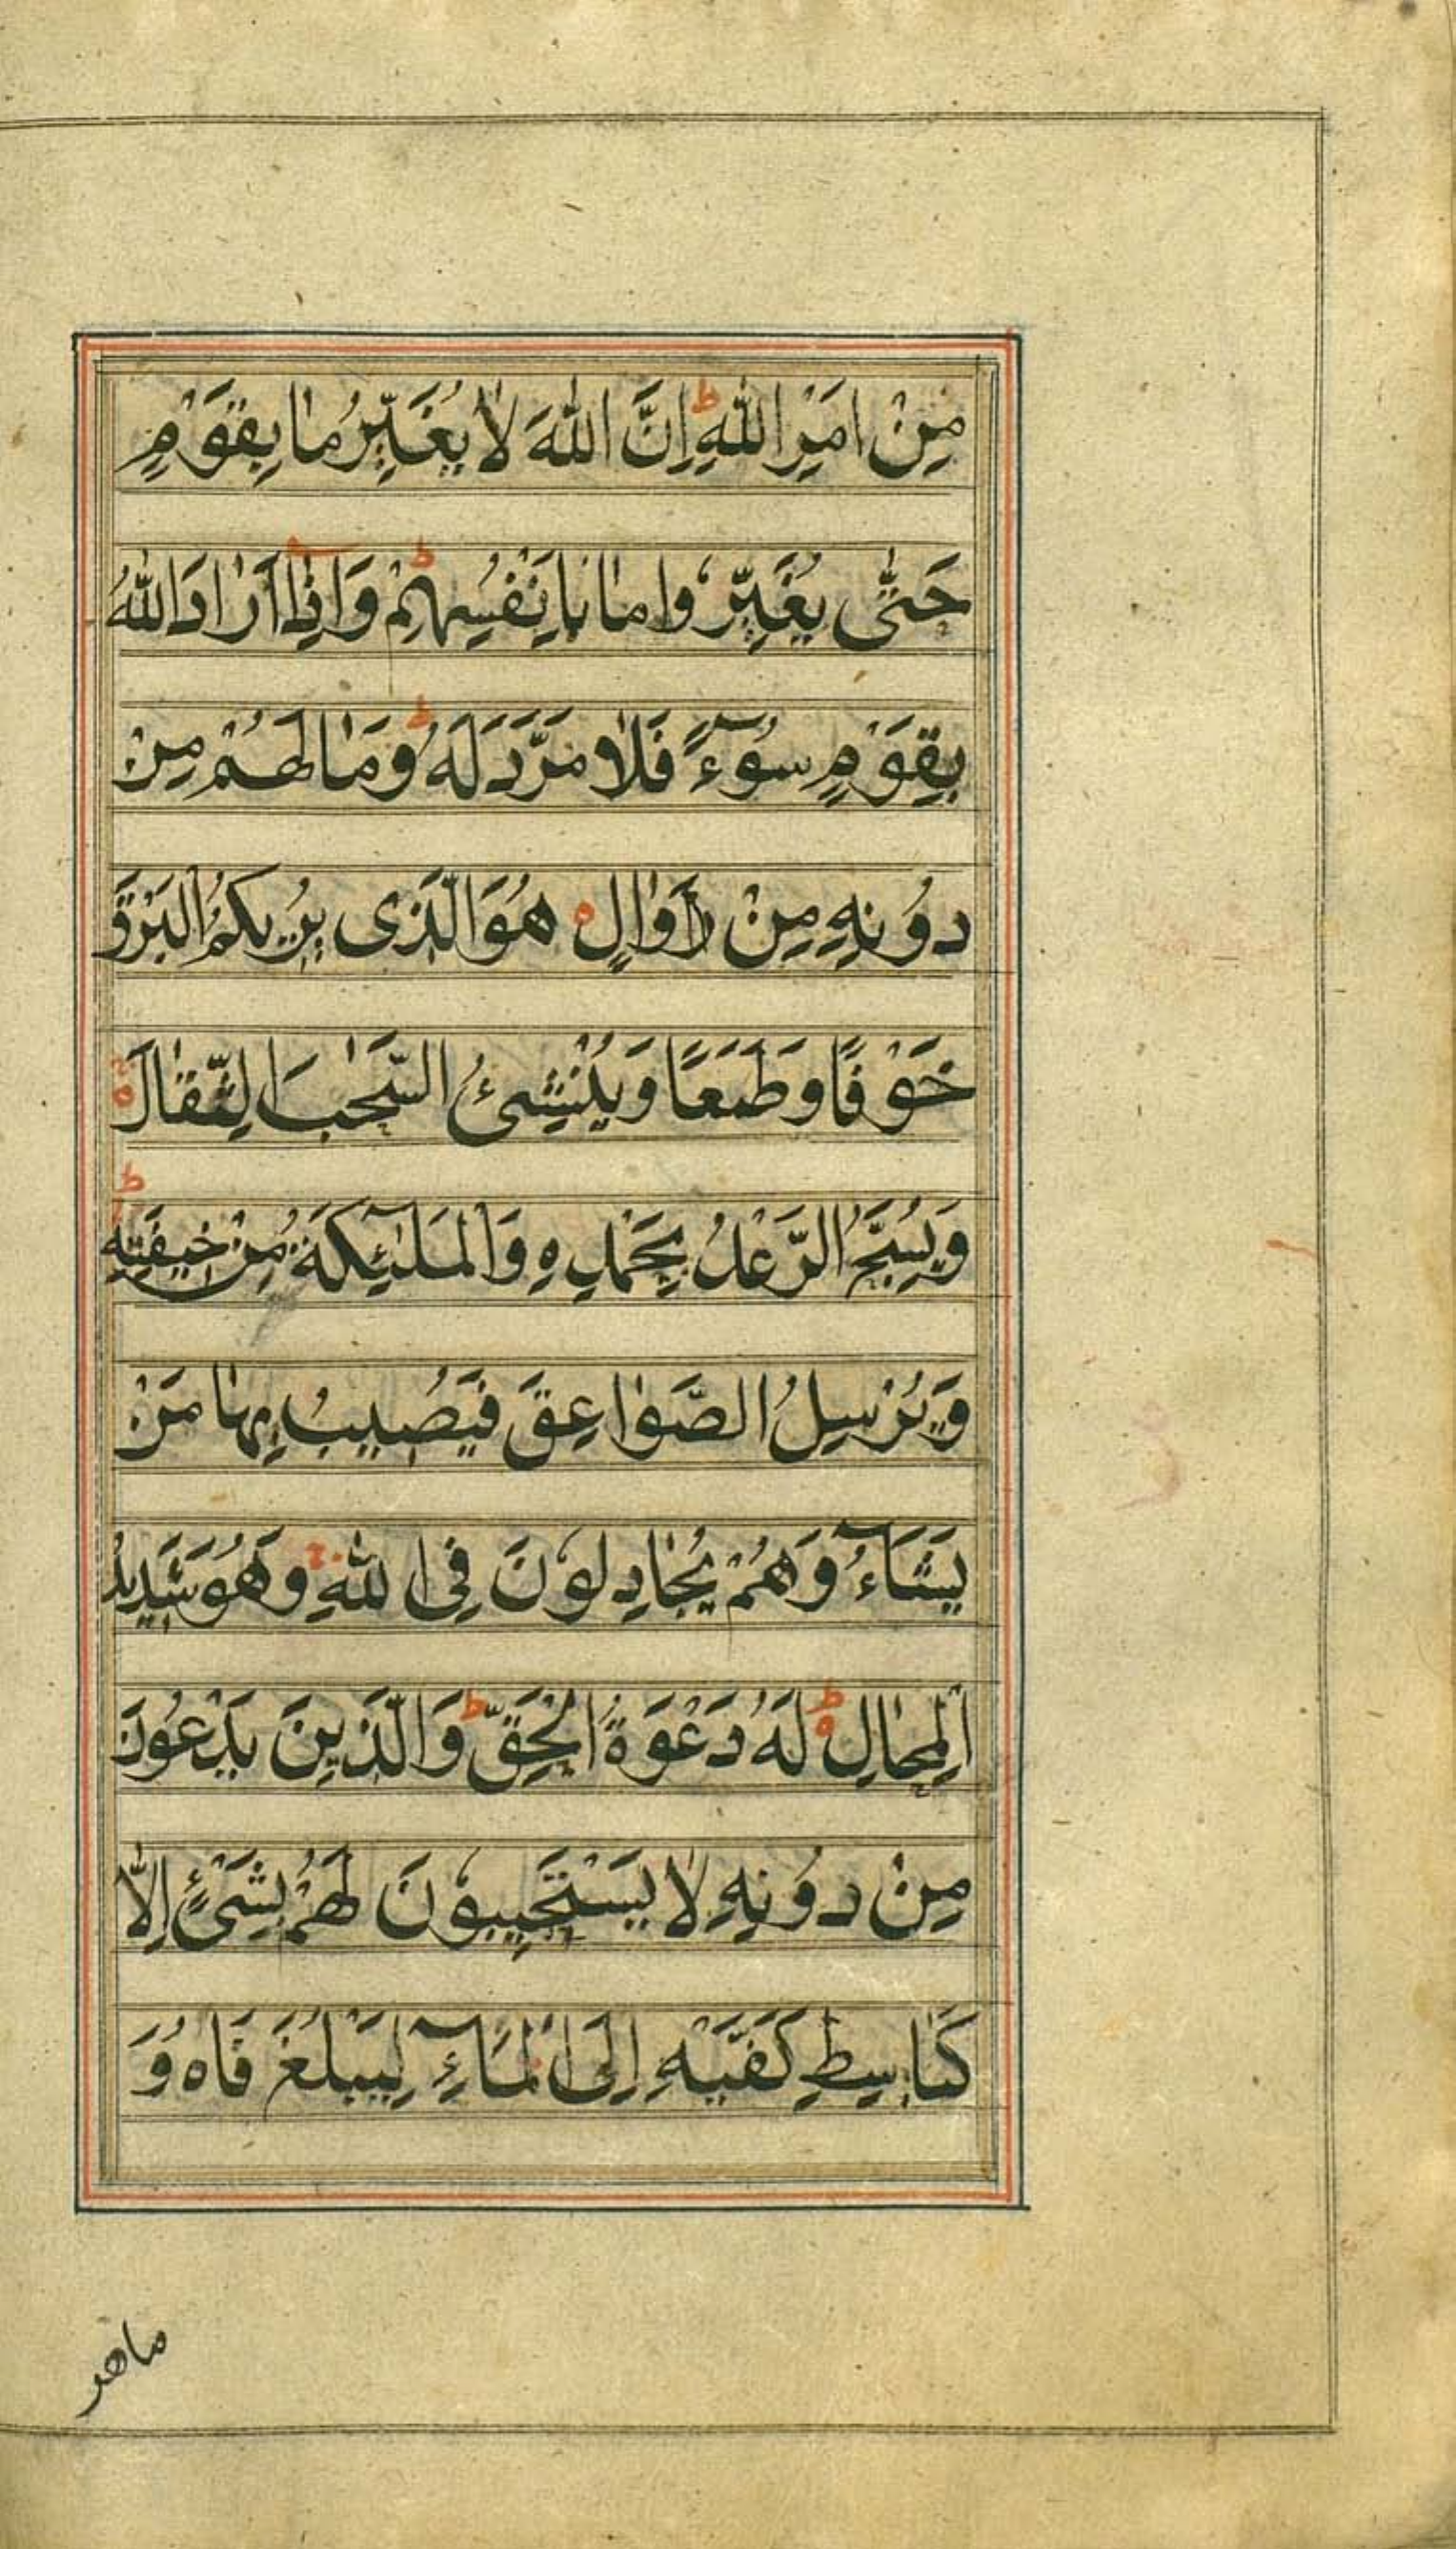 مِنْ اَمْرِ اللّٰهِ ؕ اِنَّ اللّٰهَ لَا یُغَیِّرُ مَا بِقَوْمٍ
حَتّٰی یُغَیِّرُوْا مَا بِاَنْفُسِهِمْ ؕ وَاِذَا اَرَادَ اللّٰهُ
بِقَوْمٍ سُوْٓءً فَلَا مَرَدَّ لَهٗ ؕ وَمَا لَهُمْ مِنْ
دُوْنِهٖ مِنْ وَالٍ ۝ هُوَ الَّذِی یُرِیْكُمُ الْبَرْقَ
خَوْفًا وَطَمَعًا وَیُنْشِئُ السَّحَابَ الثِّقَالَ ۝
وَیُسَبِّحُ الرَّعْدُ بِحَمْدِهٖ وَالْمَلٰٓئِكَةُ مِنْ خِیْفَتِهٖ ؕ
وَیُرْسِلُ الصَّوَاعِقَ فَیُصِیْبُ بِهَا مَنْ
یَشَآءُ وَهُمْ یُجَادِلُوْنَ فِی اللّٰهِ ۚ وَهُوَ شَدِیْدُ
الْمِحَالِ ۝ؕ لَهٗ دَعْوَةُ الْحَقِّ ؕ وَالَّذِیْنَ یَدْعُوْنَ
مِنْ دُوْنِهٖ لَا یَسْتَجِیْبُوْنَ لَهُمْ بِشَیْءٍ اِلَّا
كَبَاسِطِ كَفَّیْهِ اِلَی الْمَآءِ لِیَبْلُغَ فَاهُ وَ
ماهو